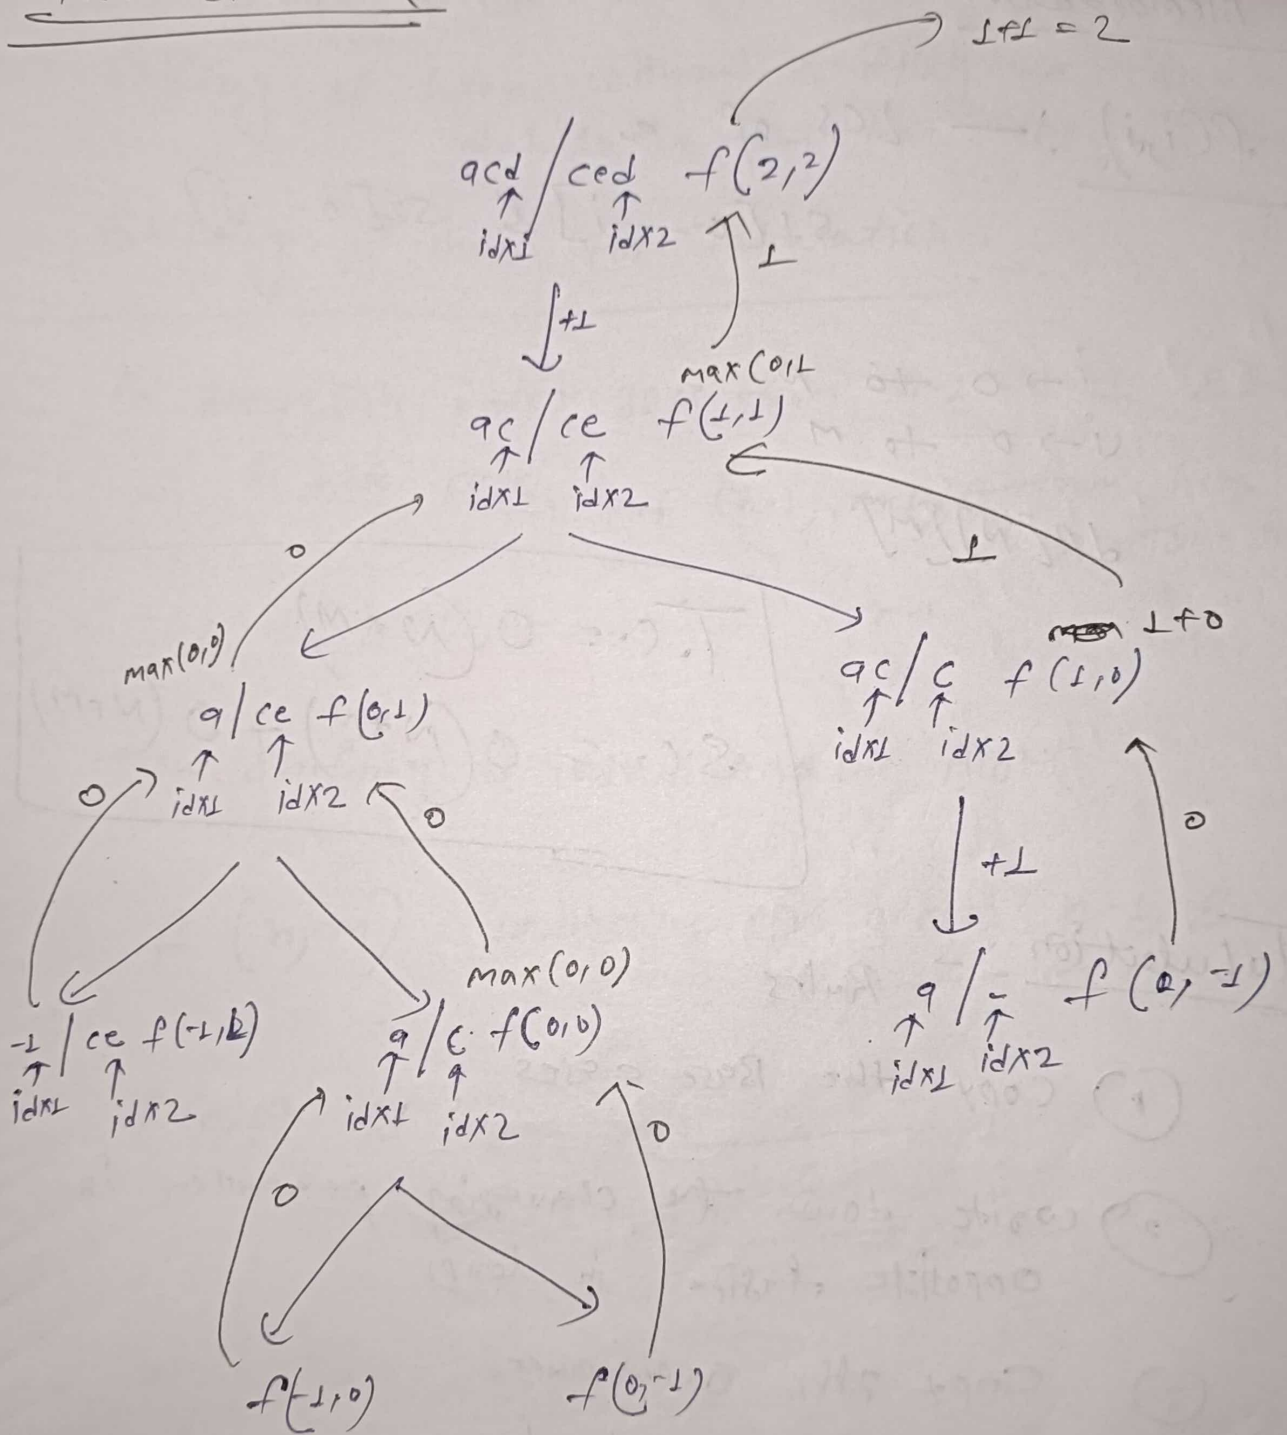 1+1 = 2
acd / ced f(2,2)
↑ ↑
idx1 idx2
1
+1
max(0,1
ac / ce f(1,1)
↑ ↑
idx1 idx2
0
1
max(0,0)
1+0
a / ce f(0,1)
↑ ↑
idx1 idx2
ac / c f(1,0)
↑ ↑
idx1 idx2
0
0
0
+1
max(0,0)
-1 / ce
↑ ↑
idx1 idx2
a / c f(0,0)
↑ ↑
idx1 idx2
a / - f(0,-1)
↑ ↑
idx1 idx2
0
0
f(-1,0)
f(0,-1)